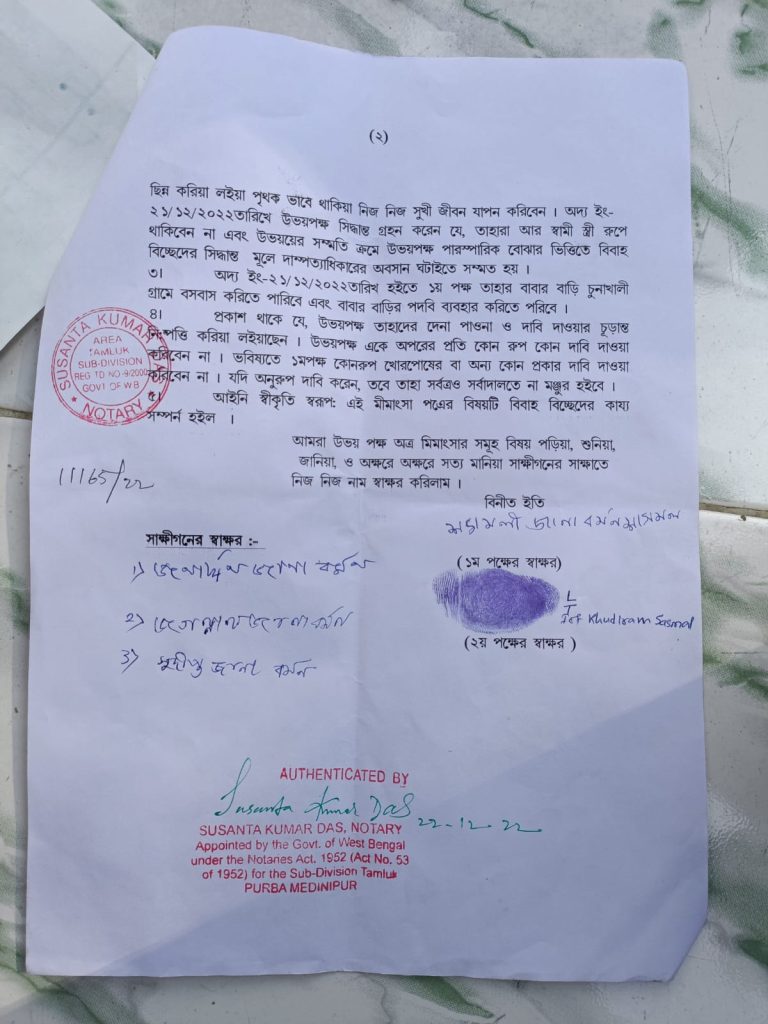 (২)
ছিন্ন করিয়া লইয়া পৃথক ভাবে থাকিয়া নিজ নিজ সুখী জীবন যাপন করিবেন । অদ্য ইং-
২১/১২/২০২২তারিখে উভয়পক্ষ সিদ্ধান্ত গ্রহন করেন যে, তাহারা আর স্বামী স্ত্রী রুপে
থাকিবেন না এবং উভয়য়ের সম্মতি ক্রমে উভয়পক্ষ পারস্পারিক বোঝার ভিত্তিতে বিবাহ
বিচ্ছেদের সিদ্ধান্ত মূলে দাম্পত্যাধিকারের অবসান ঘটাইতে সম্মত হয় ।
৩। অদ্য ইং-২১/১২/২০২২তারিখ হইতে ১য় পক্ষ তাহার বাবার বাড়ি চুনাখালী
গ্রামে বসবাস করিতে পারিবে এবং বাবার বাড়ির পদবি ব্যবহার করিতে পরিবে ।
৪। প্রকাশ থাকে যে, উভয়পক্ষ তাহাদের দেনা পাওনা ও দাবি দাওয়ার চূড়ান্ত
নিষ্পত্তি করিয়া লইয়াছেন । উভয়পক্ষ একে অপরের প্রতি কোন রুপ কোন দাবি দাওয়া
করিবেন না । ভবিষ্যতে ১মপক্ষ কোনরুপ খোরপোষের বা অন্য কোন প্রকার দাবি দাওয়া
করিবেন না । যদি অনুরুপ দাবি করেন, তবে তাহা সর্বত্রও সর্বাদালতে না মঞ্জুর হইবে ।
৫। আইনি স্বীকৃতি স্বরূপ: এই মীমাংসা পত্রের বিষয়টি বিবাহ বিচ্ছেদের কায্য
সম্পর্ন হইল ।
SUSANTA KUMAR
AREA
TAMLUK
SUB-DIVISION
GOVT OF W.B
NOTARY
আমরা উভয় পক্ষ অত্র মিমাংসার সমূহ বিষয় পড়িয়া, শুনিয়া,
জানিয়া, ও অক্ষরে অক্ষরে সত্য মানিয়া সাক্ষীগনের সাক্ষাতে
নিজ নিজ নাম স্বাক্ষর করিলাম ।
11165/22
বিনীত ইতি
জানা বর্মন
সাক্ষীগনের স্বাক্ষর :-
(১ম পক্ষের স্বাক্ষর)
১) জনার্দ্দন জানা বর্মন
L
T
I of Khudiram Sasmal
২) জানা বর্মন
(২য় পক্ষের স্বাক্ষর )
৩) সুদীপ্ত জানা বর্মন
AUTHENTICATED BY
Susanta Kumar Das 22-12-22
SUSANTA KUMAR DAS, NOTARY
Appointed by the Govt. of West Bengal
under the Notaries Act. 1952 (Act No. 53
of 1952) for the Sub-Division Tamluk
PURBA MEDINIPUR